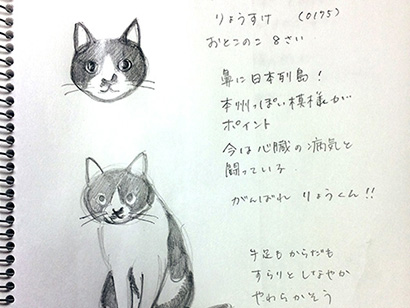 りょうすけ (0175)
おとこのこ 8さい
鼻に日本列島!
本州っぽい模様が
ポイント
今は心臓の病気と
闘っている
がんばれ りょうくん!!
手足もからだも
すらりとしなやか
やわらかそう